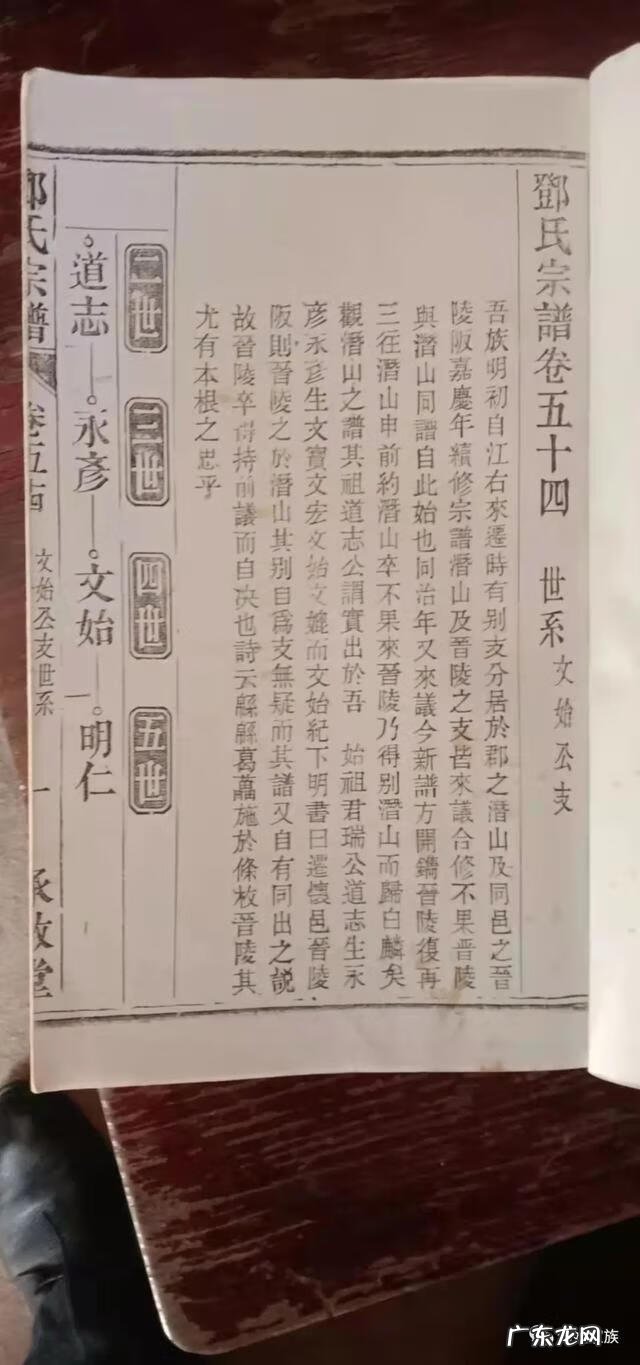 鄧氏宗譜卷五十四 世系 文始公支
吾族明初自江右來遷時有别支分居於郡之潛山及同邑之晉
陵阪嘉慶年續修宗譜潛山及晉陵之支皆來議合修不果晋陵
與潛山同譜自此始也同治年又來議今新譜方開鐫晉陵復再
三往潛山申前約潛山卒不果來晉陵乃得别潛山而歸白麟矣
觀潛山之譜其祖道志公謂實出於吾 始祖君瑞公道志生永
彦永彦生文寶文宏文始文嬔而文始紀下明書曰遷懷邑晉陵
阪則晉陵之於潛山其别自爲支無疑而其譜又自有同出之説
故晉陵卒得持前議而自決也詩云緜緜葛藟施於條枚晉陵其
尤有本根之思乎
二世 三世 四世 五世
道志 永彦 文始 明仁
鄧氏宗譜 卷五十四 文始公支世系 一 承啟堂
广东龙网
族